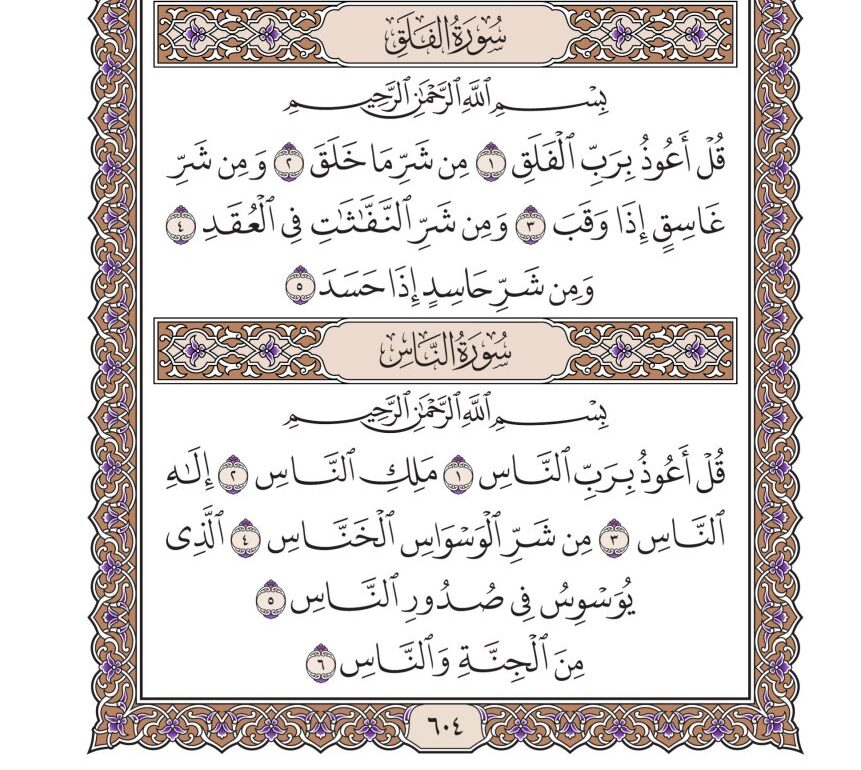 سُورَةُ الفَلَقِ
بِسْمِ ٱللَّهِ ٱلرَّحْمَٰنِ ٱلرَّحِيمِ
قُلْ أَعُوذُ بِرَبِّ ٱلْفَلَقِ ١ مِن شَرِّ مَا خَلَقَ ٢ وَمِن شَرِّ
غَاسِقٍ إِذَا وَقَبَ ٣ وَمِن شَرِّ ٱلنَّفَّٰثَٰتِ فِي ٱلْعُقَدِ ٤
وَمِن شَرِّ حَاسِدٍ إِذَا حَسَدَ ٥
سُورَةُ النَّاسِ
بِسْمِ ٱللَّهِ ٱلرَّحْمَٰنِ ٱلرَّحِيمِ
قُلْ أَعُوذُ بِرَبِّ ٱلنَّاسِ ١ مَلِكِ ٱلنَّاسِ ٢ إِلَٰهِ
ٱلنَّاسِ ٣ مِن شَرِّ ٱلْوَسْوَاسِ ٱلْخَنَّاسِ ٤ ٱلَّذِى
يُوَسْوِسُ فِى صُدُورِ ٱلنَّاسِ ٥
مِنَ ٱلْجِنَّةِ وَٱلنَّاسِ ٦
٦٠٤